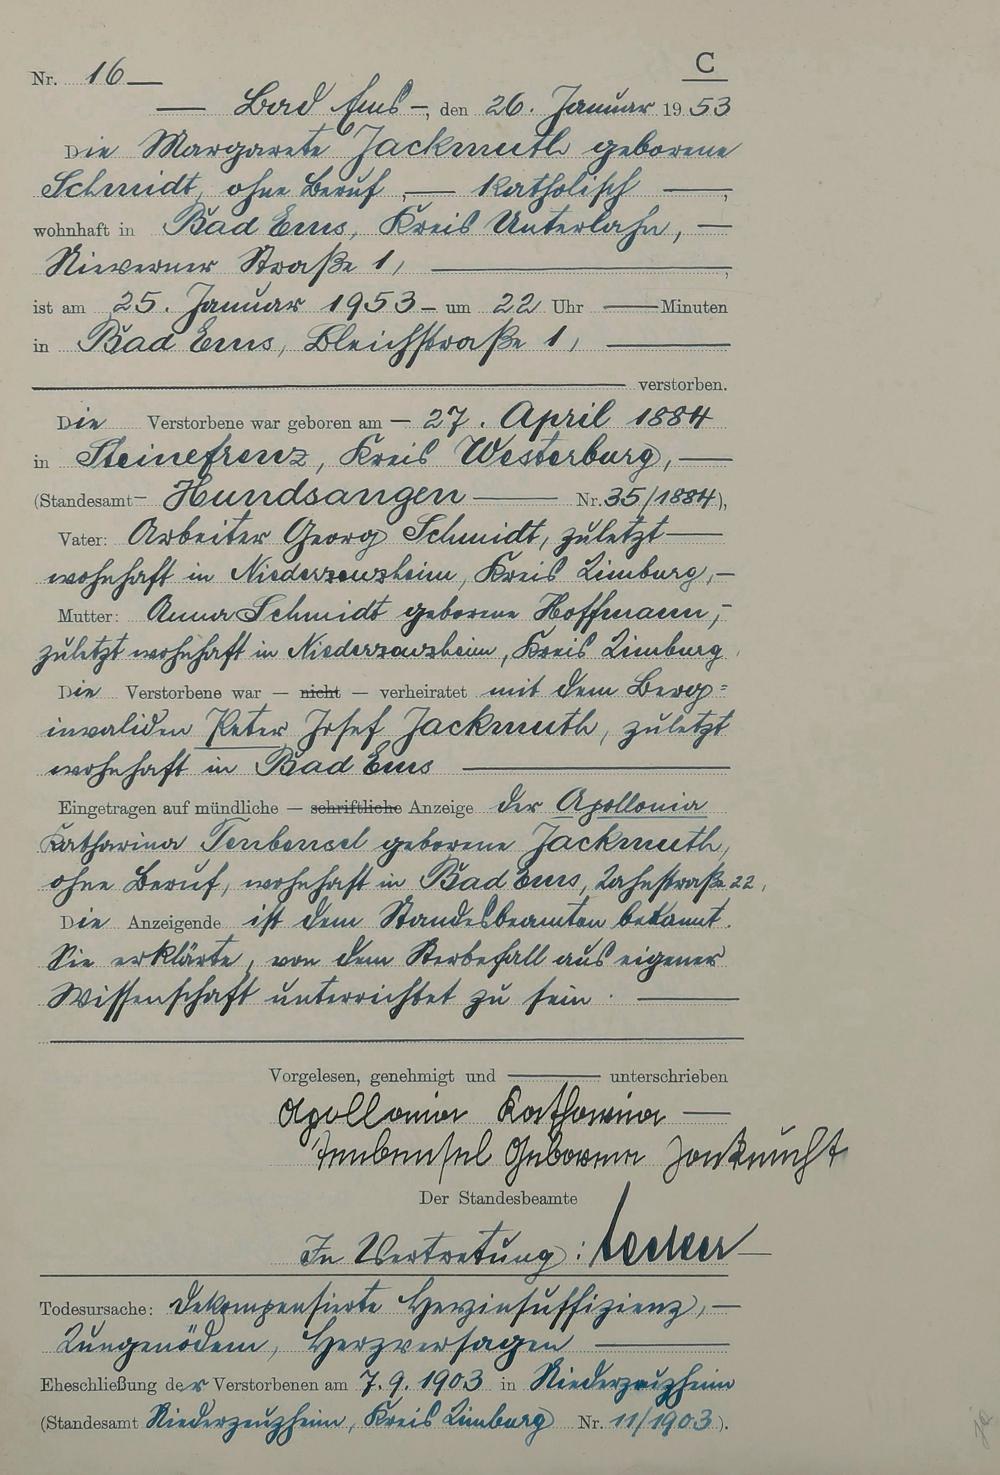 C
Nr. 16
Bad Ems, den 26. Januar 1953
Die Margarete Jackmuth geborene
Schmidt, ohne Beruf, katholisch,
wohnhaft in Bad Ems, Kreis Unterlahn,
Nieverner Straße 1,
ist am 25. Januar 1953 um 22 Uhr Minuten
in Bad Ems, Bleichstraße 1,
verstorben.
Die Verstorbene war geboren am 27. April 1884
in Steinefrenz, Kreis Westerburg,
(Standesamt Hundsangen Nr. 35/1884),
Vater: Arbeiter Georg Schmidt, zuletzt
wohnhaft in Niederzeuzheim, Kreis Limburg,
Mutter: Anna Schmidt geborene Hoffmann,
zuletzt wohnhaft in Niederzeuzheim, Kreis Limburg.
Die Verstorbene war — nicht — verheiratet mit dem Berg=
invaliden Peter Josef Jackmuth, zuletzt
wohnhaft in Bad Ems
Eingetragen auf mündliche — schriftliche Anzeige der Apollonia
Katharina geborene Jackmuth,
ohne Beruf, wohnhaft in Bad Ems, Lahnstraße 22,
Die Anzeigende ist dem Standesbeamten bekannt.
Sie erklärte, von dem Sterbefall aus eigener
Wissenschaft unterrichtet zu sein.
Vorgelesen, genehmigt und unterschrieben
Apollonia Katharina
Geborene
Der Standesbeamte
In Vertretung:
Todesursache: Dekompensierte Herzinsuffizienz,
Lungenödem, Herzversagen
Eheschließung der Verstorbenen am 7.9.1903 in Niederzeuzheim
(Standesamt Niederzeuzheim, Kreis Limburg Nr. 11/1903).